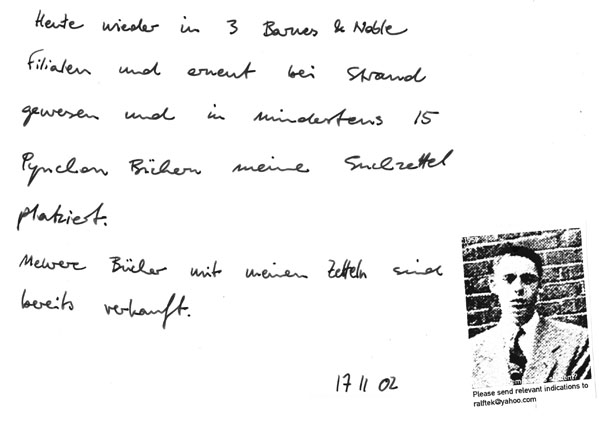 Heute wieder in 3 Barnes & Noble
Filialen und erneut bei Strand
gewesen und in mindestens 15
Pynchon Büchern meine Suchzettel
platziert.
Mehrere Bücher mit meinen Zetteln sind
bereits verkauft.
17 11 02
Please send relevant indications to
ralftek@yahoo.com